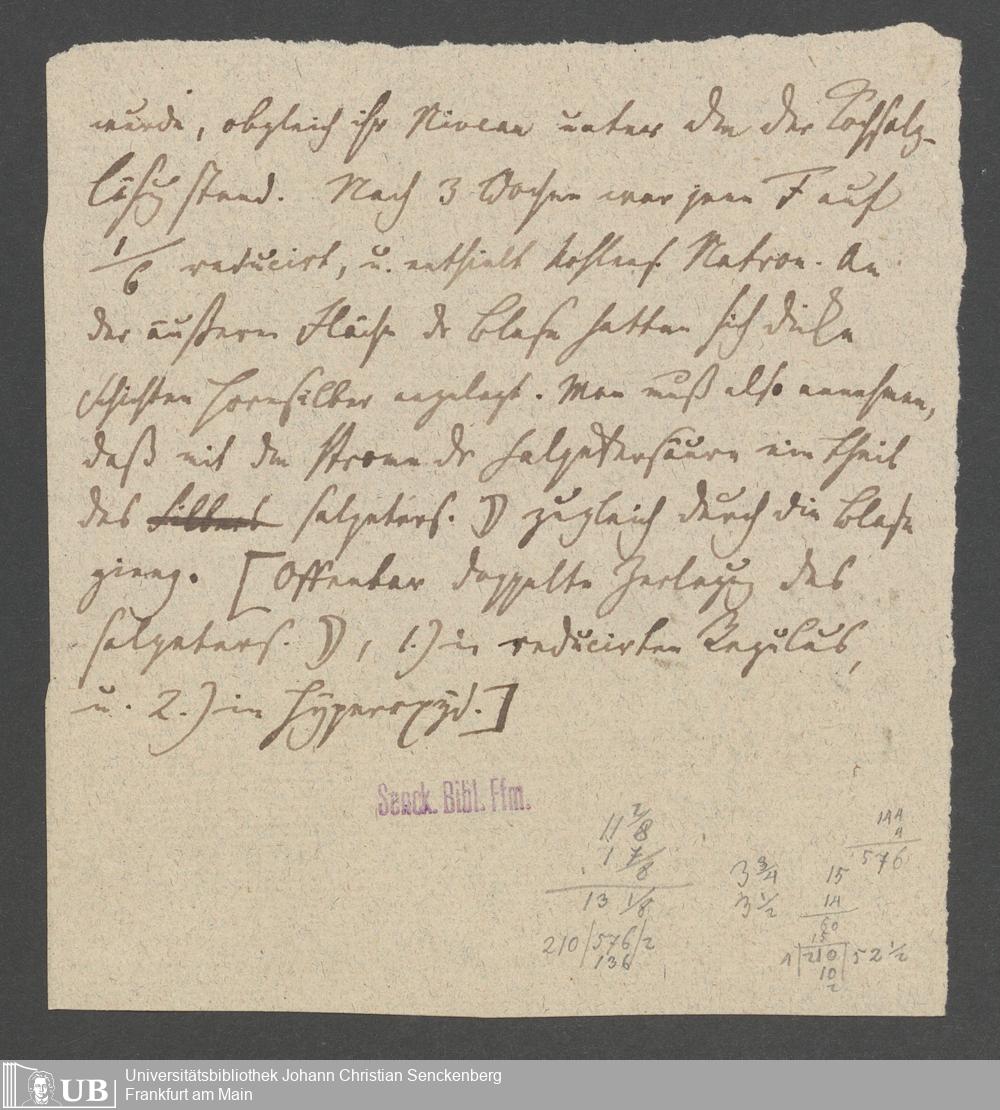 wurde, obgleich ihr Niveau unter dem der Kochsalz-
lösung stand. Nach 3 Wochen war jene F auf
1/6 reducirt, u. enthielt kohlens. Natron. An
der äußeren Fläche der Blase hatten sich dicke
Schichten Hornsilber angelegt. Man muß also annehmen,
daß mit dem Strome der Salpetersäure ein Theil
des Silbers salpeters. ☽ zugleich durch die Blase
gieng. [Offenbar doppelte Zerlegung des
salpeters. ☽, 1.) in reducirten Regulus,
u. 2.) in Hyperoxyd.]
Senck. Bibl. Ffm.
11 2/8
1 7/8
13 1/8
210/576/2
136
3 3/4
3 1/2
144
4
576
15
14
60
15
4/210/52 1/2
10
2
UB
Universitätsbibliothek Johann Christian Senckenberg
Frankfurt am Main